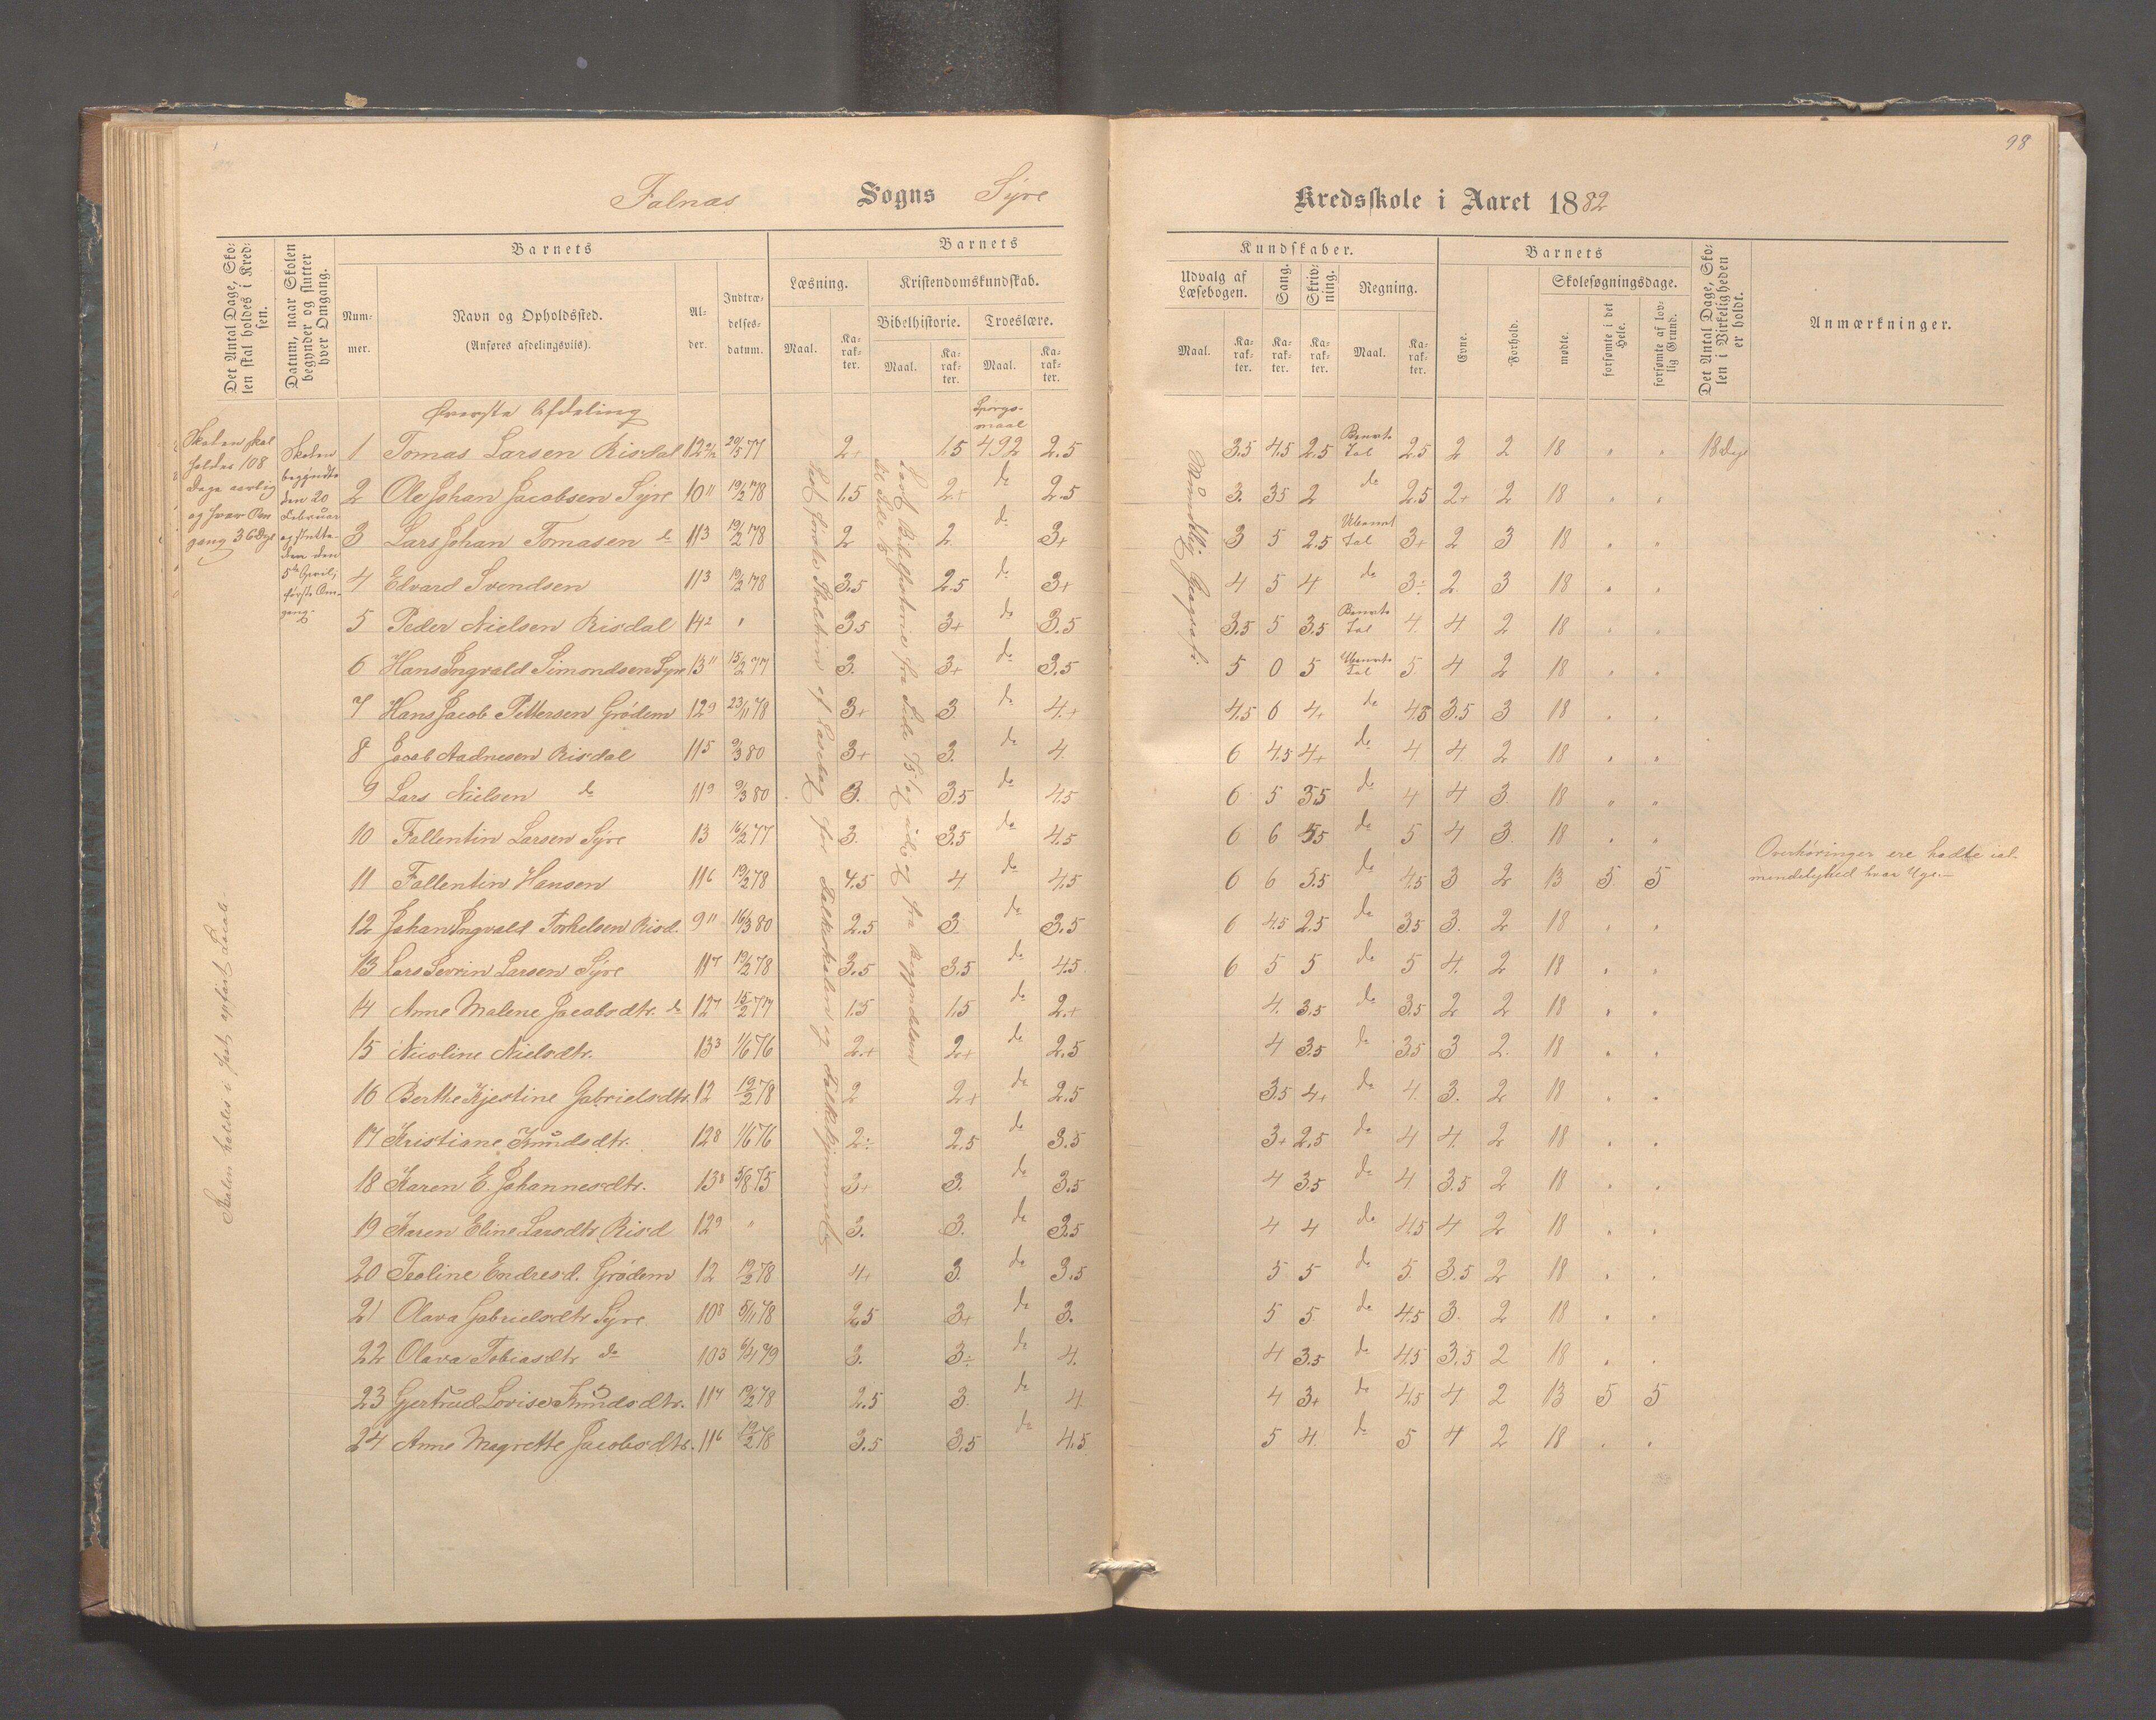 98
Falnæs Sogns Syre
Kredsskole i Aaret 1882
Det Antal Dage, Skolen skal holdes i Kredsen.
Datum, naar Skolen begynder og slutter hver Omgang.
Barnets
Nummer.
Navn og Opholdssted.
(Anføres afdelingsvis).
Alder.
Indtrædelsesdatum.
Barnets
Læsning.
Maal.
Karakter.
Kristendomskundskab.
Bibelhistorie.
Maal.
Karakter.
Troeslære.
Maal.
Karakter.
Kundskaber.
Udvalg af Læsebogen.
Maal.
Karakter.
Sang.
Karakter.
Skrivning.
Karakter.
Regning.
Maal.
Karakter.
Barnets
Evne.
Forhold.
Skolesøgningsdage.
mødte.
forsømte i det Hele.
forsømte af lovlig Grund.
Det Antal Dage, Skolen i Virkeligheden er holdt.
Anmærkninger.
Øverste Afdeling
Spørgsmaal
Skolen skal
holdes 108
Dage aarlig
og hver Om
gang 36 Dge
Skolen
begyndte
den 20
Februar
og sluttede
den
5te April,
første Om-
gang.
1 Tomas Larsen Risdal 12 2/12 29/5 77 2+ 1.5 492 2.5 3.5 4.5 2.5 Benævte Tal 2.5 2 2 18 " " 18 Dge
2 Ole Johan Jacobsen Syre 10 11 19/2 78 1.5 2+ do 2.5 3. 3.5 2 do 2.5 2+ 2 18 " "
3 Lars Johan Tomasen do 11 3 19/2 78 2 2 do 3+ 3 5 2.5 Ubenævt Tal 3+ 2 3 18 " "
4 Edvard Svendsen 11 3 19/2 78 3.5 2.5 do 3+ 4 5 4 do 3÷ 2 3 18 " "
5 Peder Nielsen Risdal 14 2 " 3.5 3+ do 3.5 3.5 5 3.5 Benævte Tal 4. 4 2 18 " "
6 Hans Ingvald Simondsen Syre 13 11 15/2 77 3. 3+ do 3.5 5 0 5 Ubenævte Tal 5. 4 2 18 " "
7 Hans Jacob Pettersen Grødem 12 9 23/11 78 3+ 3 do 4+ 4.5 6 4+ do 4.5 3.5 3 18 " "
8 Jacob Aadnesen Risdal 11 5 9/3 80 3+ 3. do 4. 6 4.5 4+ do 4 4. 2 18 " "
9 Lars Nielsen do 11 9 9/3 80 3. 3.5 do 4.5 6 5 3.5 do 4 4 3 18 " "
10 Fallentin Larsen Syre 13 16/2 77 3. 3.5 do 4.5 6 6 5.5 do 5 4 3. 18 " "
11 Fallentin Hansen 11 6 19/2 78 4.5 4 do 4.5 6 6 5.5 do 4.5 3 2 13 5 5
12 Johan Ingvald Torkelsen Risd. 9 11 16/3 80 2.5 3. do 3.5 6 4.5 2.5 do 3.5 3. 2 18 " "
13 Lars Sevrin Larsen Syre 11 7 19/2 78 3.5 3.5 do 4.5 6 5 5 do 5 4. 2 18 " "
14 Anne Malene Jacobsdtr. do 12 7 15/2 77 1.5 1.5 do 2+ 4. 3.5 do 3.5 2 2 18 " "
15 Nicoline Nielsdtr. 13 3 1/6 76 2+ 2+ do 2.5 4 3.5 do 3.5 3 2. 18 " "
16 Berthe Kjestine Gabrielsdtr. 12 19/2 78 2 2+ do 2.5 3.5 4+ do 4. 3. 2 18 " "
17 Kristiane Knudsdtr. 12 8 1/6 76 2÷ 2.5 do 3.5 3+ 2.5 do 4 4. 2 18 " "
18 Karen E. Johannesdtr. 13 8 5/8 75 3+ 3. do 3.5 4 3.5 do 4 3.5 2 18 " "
19 Karen Eline Larsdtr. Risd 12 9 " 3. 3. do 3.5 4 4 do 4.5 4 2 18 " "
20 Teoline Endresd. Grødem 12 19/2 78 4+ 3. do 3.5 5 5 do 5. 3.5 2 18 " "
21 Olava Gabrielsdtr Syre 10 8 5/11 78 2.5 3+ do 3. 5 5 do 4.5 3. 2 18 " "
22 Olava Tobiasdtr do 10 3 6/4 79 3. 3÷ do 4. 4 3.5 do 4.5 3.5 2 18 " "
23 Gjertrud Lovise Knudsdtr. 11 7 19/2 78 2.5 3. do 4. 4 3+ do 4.5 4 2 13 5 5
24 Anne Magrette Jacobsdtr. 11 6 19/2 78 3.5 3.5 do 4.5 5 4 do 5 4 2 18 " "
Skolen holdes i fast opført Locale
Lest fordte Skoletrin af Læsebog for Folkeskolen og Folkehjemmet
Læst Bibelhistorier fra Side 75 og udi og fra Begyndelsen
til Side 10
Mundtlig Geografi.
Overhøringer ere holdte ial-
mindelighed hver Uge.